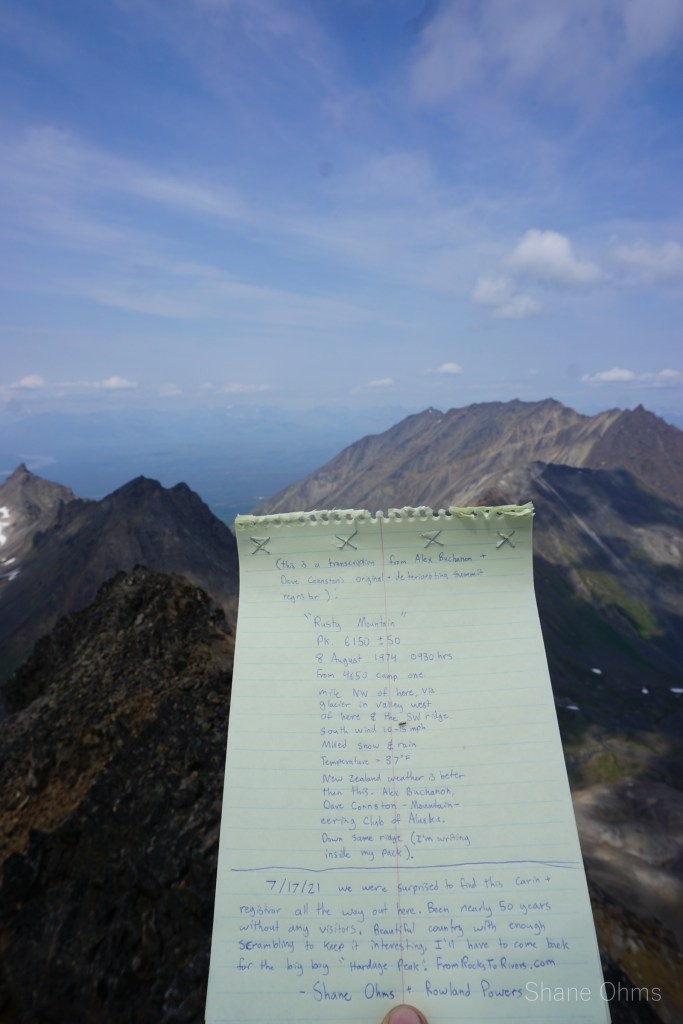 (this is a transcription from Alex Buchanon +
Dave Connston's original + deteriorating summit
registar).
"Rusty Mountain"
PK. 6150 ± 50
8 August 1974 0930 hrs
from 4650 camp one
mile NW of here, via
glacier in valley west
of here & the SW ridge
South wind 10-15 mph
Mixed snow & rain
Temperature ~ 37°F
New Zealand weather is beter
than this. Alex Buchanon,
Dave Connston - Mountain-
eering Club of Alaska.
Down same ridge (I'm writing
inside my pack).
7/17/21 we were surprised to find this Carin +
registrar all the way out here. Been nearly 50 years
without any visitors. Beautiful country with enough
scrambling to keep it interesting. I'll have to come back
for the big boy "Hardage Peak". FromRocksToRivers.com
- Shane Ohms + Rowland Powers
Shane Ohms